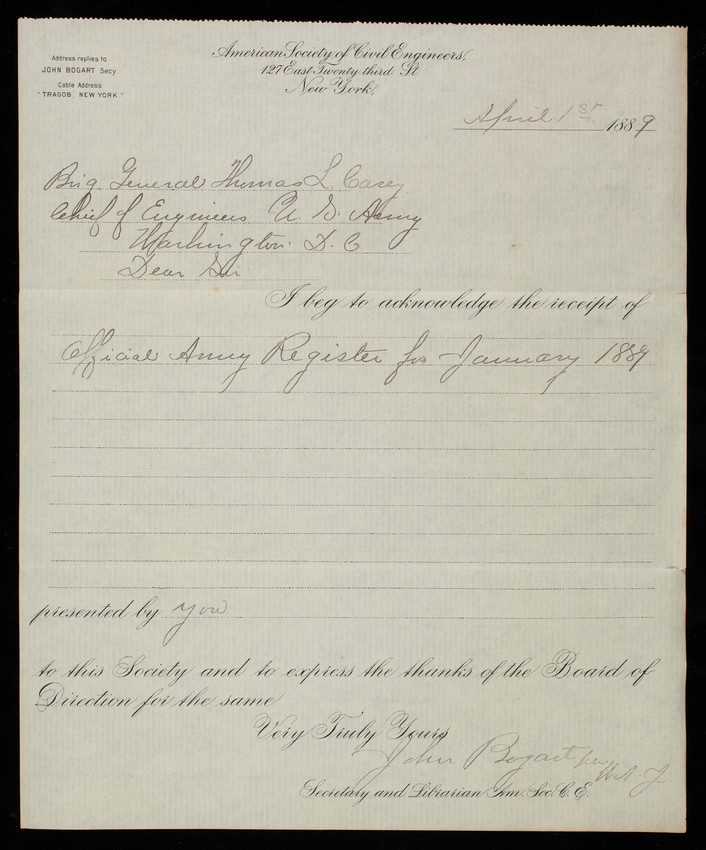 Address replies to
JOHN BOGART Secy.
Cable Address
"TRAGOB, NEW YORK."
American Society of Civil Engineers,
127 East Twenty third St.
New York,
April 1st 1889
Brig. General Thomas L. Casey
Chief of Engineers U. S. Army
Washington. D. C
Dear Sir
I beg to acknowledge the receipt of
Official Army Register for January 1889
presented by you
to this Society and to express the thanks of the Board of
Direction for the same
Very Truly Yours
John Bogart per
Secretary and Librarian Am. Soc. C. E.